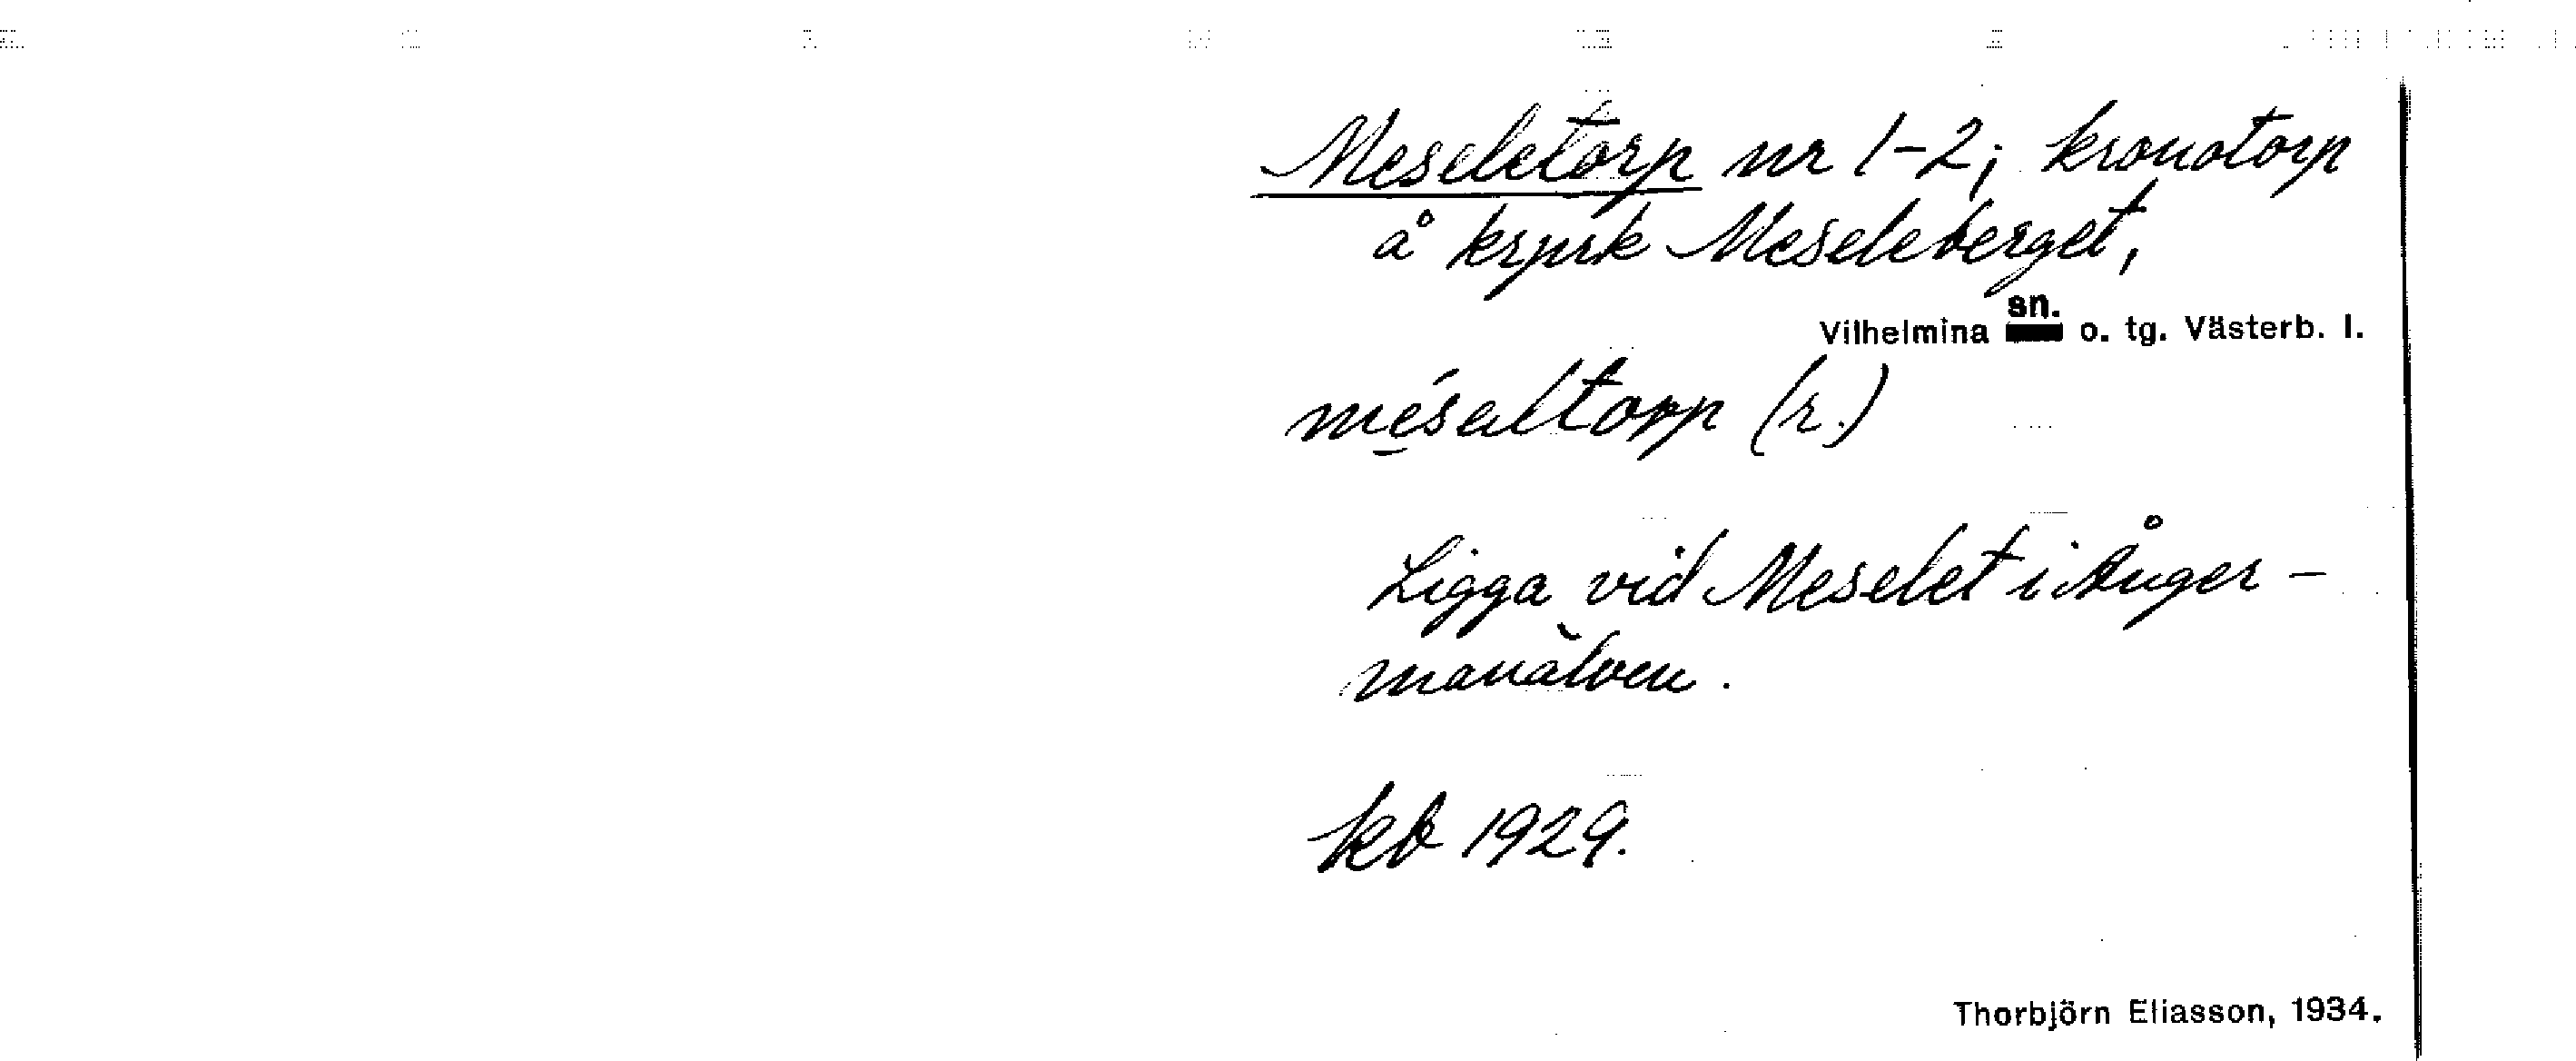 Meseletorp nr 1-2; kronotorp
å krprk Meseleberget,
Vilhelmina sn. o. tg. Västerb. l.
(r.)
Ligga vid Meselet i Ånger-
manälven.
kb 1929.
Thorbjörn Eliasson, 1934.